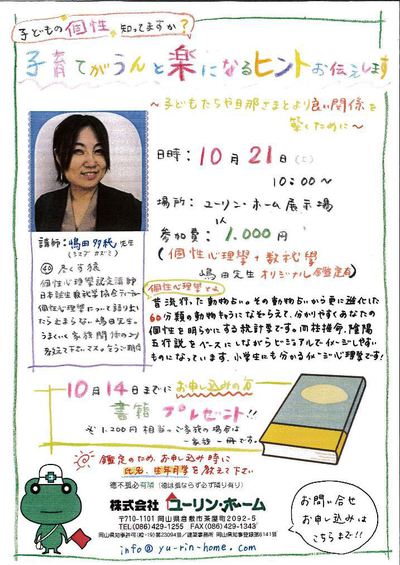 子どもの個性知ってますか?
子育てがうんと楽になるヒントお伝えします
～子どもたちや旦那さまとより良い関係を
築くために～
日時:10月21日(
10:00～
場所:ユーリン・ホーム展示場
1人
参加費:1,000円
(個性心理學+数秘學
嶋田先生オリジナル鑑定
講師:嶋田
先生
尽くす猿
個性心理學認定講師
日本誕生数秘学協会
個性心理学について語り出し
たら止まらない嶋田先生。
うまくいく家族関係のコツ
教えて下さい
個性心理學とは
昔流行った動物占い。その動物占いから更に進化した
60分類の動物キャラになぞらえて、分かりやすくあなたの
個性を明らかにする統計学です。四柱推命、陰陽
五行説をベースにしながらビジュアルでイメージしやすい
ものになっています。小学生にも分かるイメージ心理學です!
10月14日までにお申し込みの方
書籍プレゼント!!
1,200円相当 ご家族の場合は
一家族一冊です。
鑑定のため、お申し込み時に
氏名、生年月日を教えて下さい
徳不孤必有隣(徳は孤ならず必ず隣り有り)
株式会社ユーリン・ホーム
〒710-1101 岡山県倉敷市茶屋町2092-5
TEL(086)429-1255 FAX(086)429-1343
info@yu-rin-home.com
お問い合せ
お申し込みは
こちらまで!!